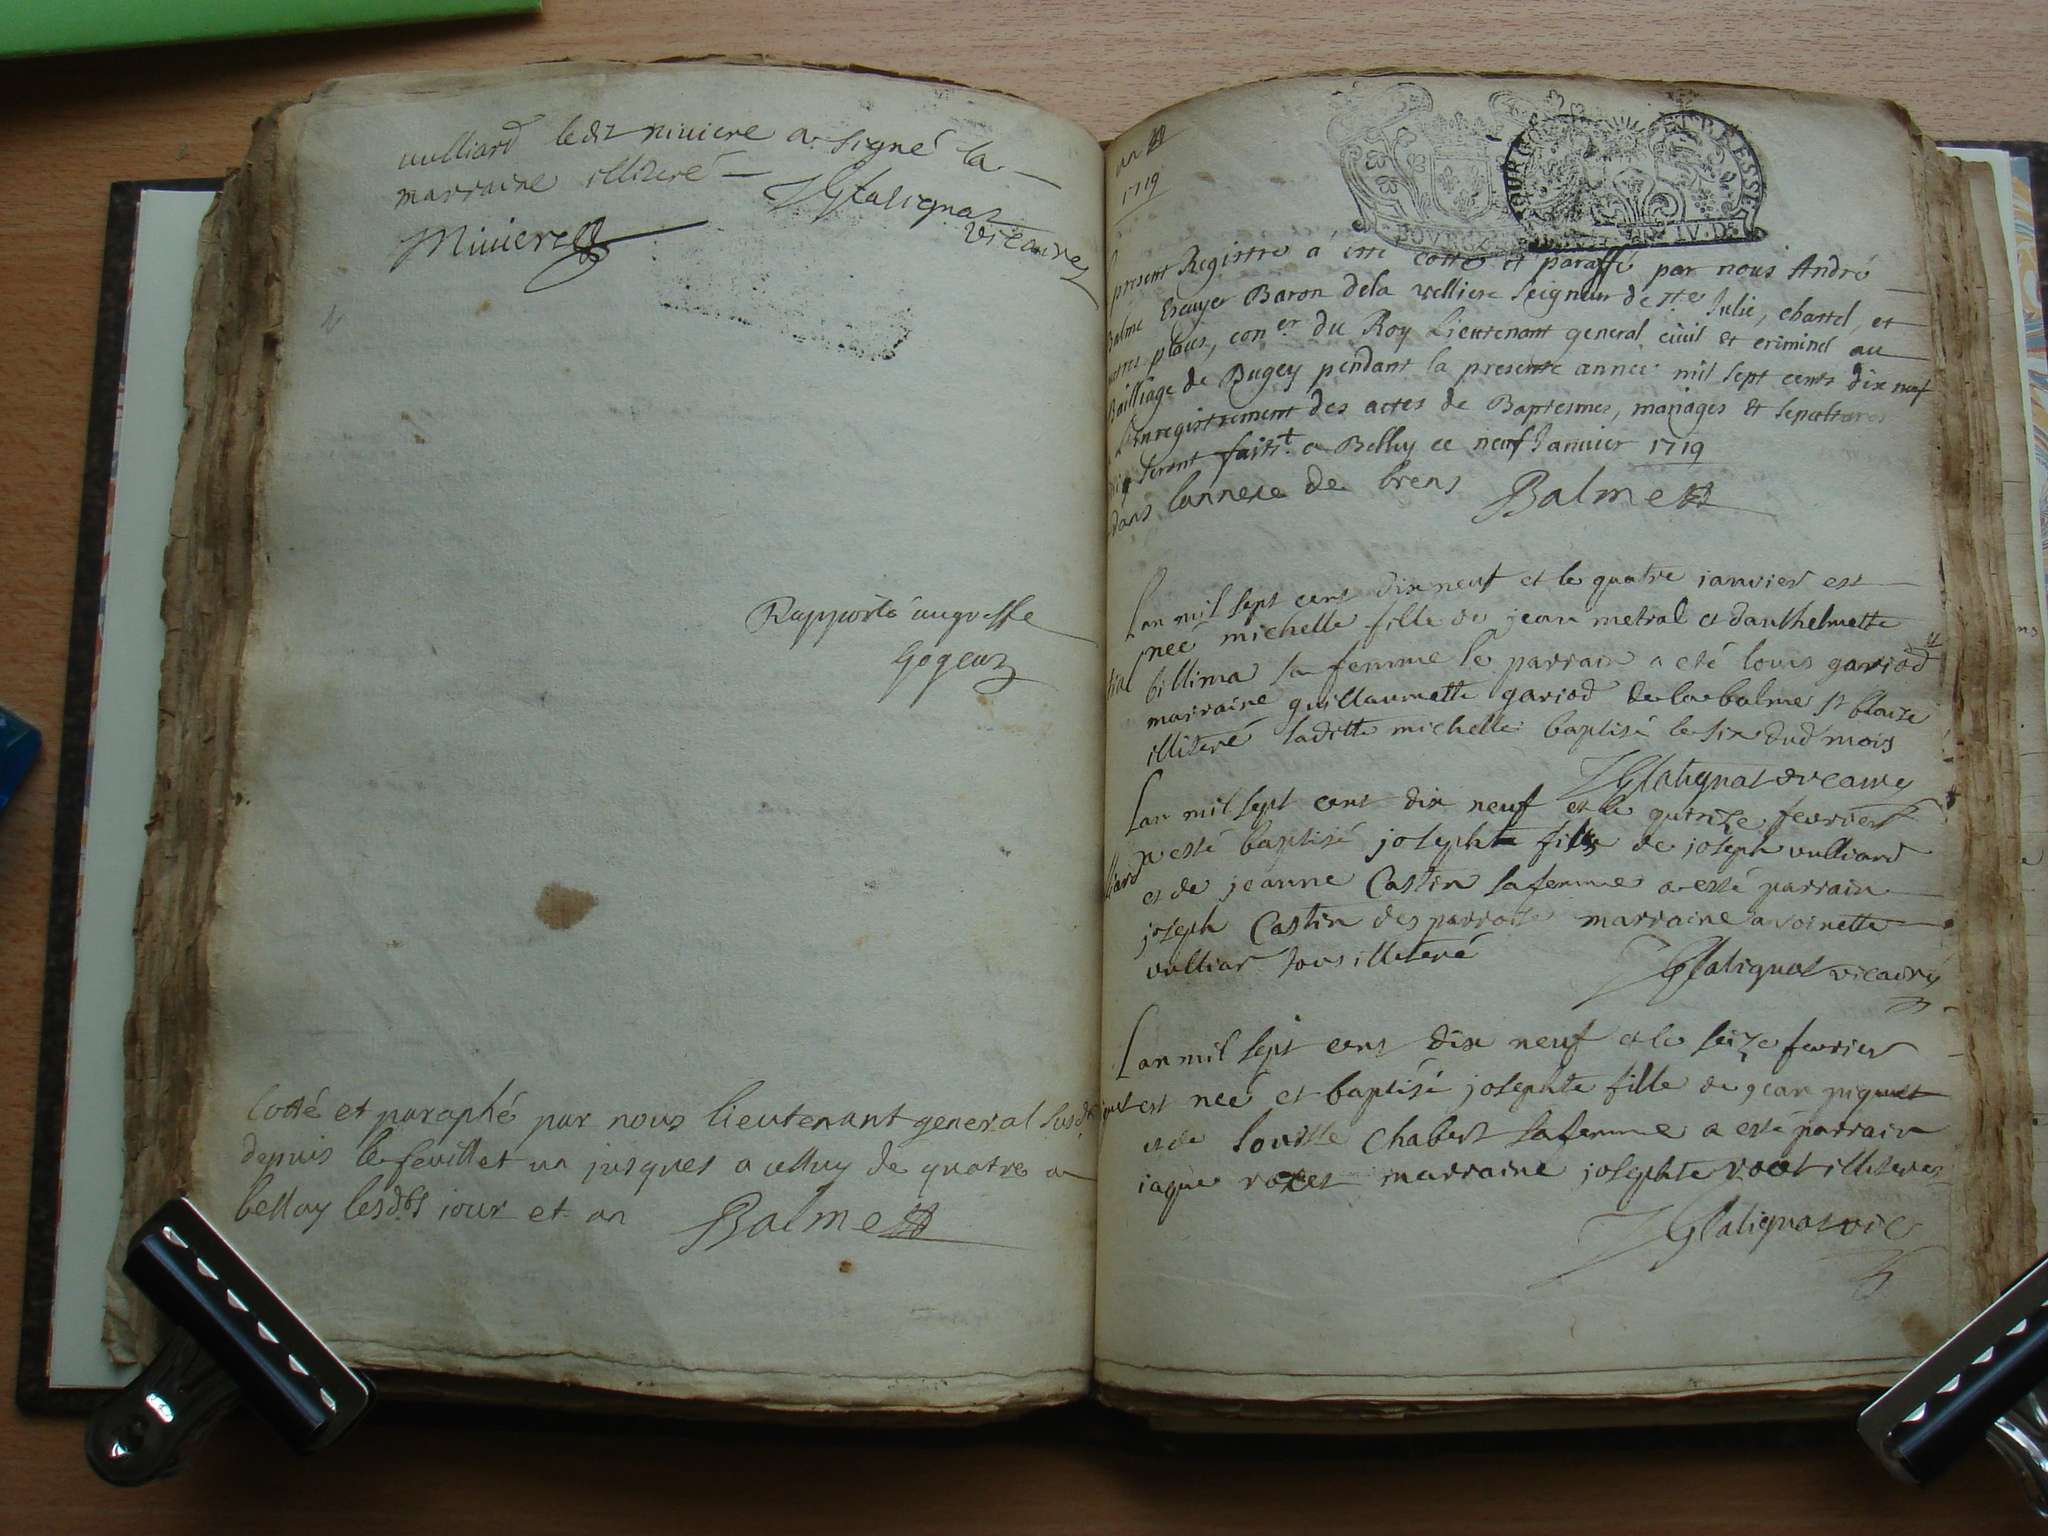 vulliard ledit niviere a signé la
marraine illiteré JGfalignat
Miviere vicaire
Rapporté augreffe
Gogeuz
Cotté et paraphé par nous lieutenant general susd.
depuis le feuillet un jusques a celluy de quatre a
bellay lesdts jour et an Balme
un
1719
BOURG ET BRESSE
present Registre a été cotté et paraffé par nous André
Balme Escuyer Baron dela velliere seigneur de Ste Julie, chastel, et
autres places, coner du Roy Lieutenant general civil et criminel au
Bailliage de Bugey pendant la presente année mil sept cents dix neuf
Lenregistrement des actes de Baptesmes, mariages et sepultures
qui seront faits a Belley ce neuf Janvier 1719
dans lannexe de brens Balme
Lan mil sept cent dix neuf et le quatre janvier est
née michelle fille de jean metral et danthelmette
billima sa femme le parrain a eté louis gariod
marraine guillaumette gariod de la balme st blaize
illiteré laditte michelle baptisé le six dud mois
JGfalignat vicaire
Lan mil sept cent dix neuf et le quinze fevrier
a esté baptisé josephte fille de joseph vulliard
et de jeanne Castin sa femme a esté parrain
joseph Castin des parroisse marraine antoinette
vulliar tous illiteré JGfalignat vicaire
Lan mil sept cent dix neuf et le seize fevrier
est née et baptisé josephte fille de jean piquet
et de louise Chabert sa femme a esté parrain
jaque roxet marraine josephte roxet illiteres
JGfalignat vic